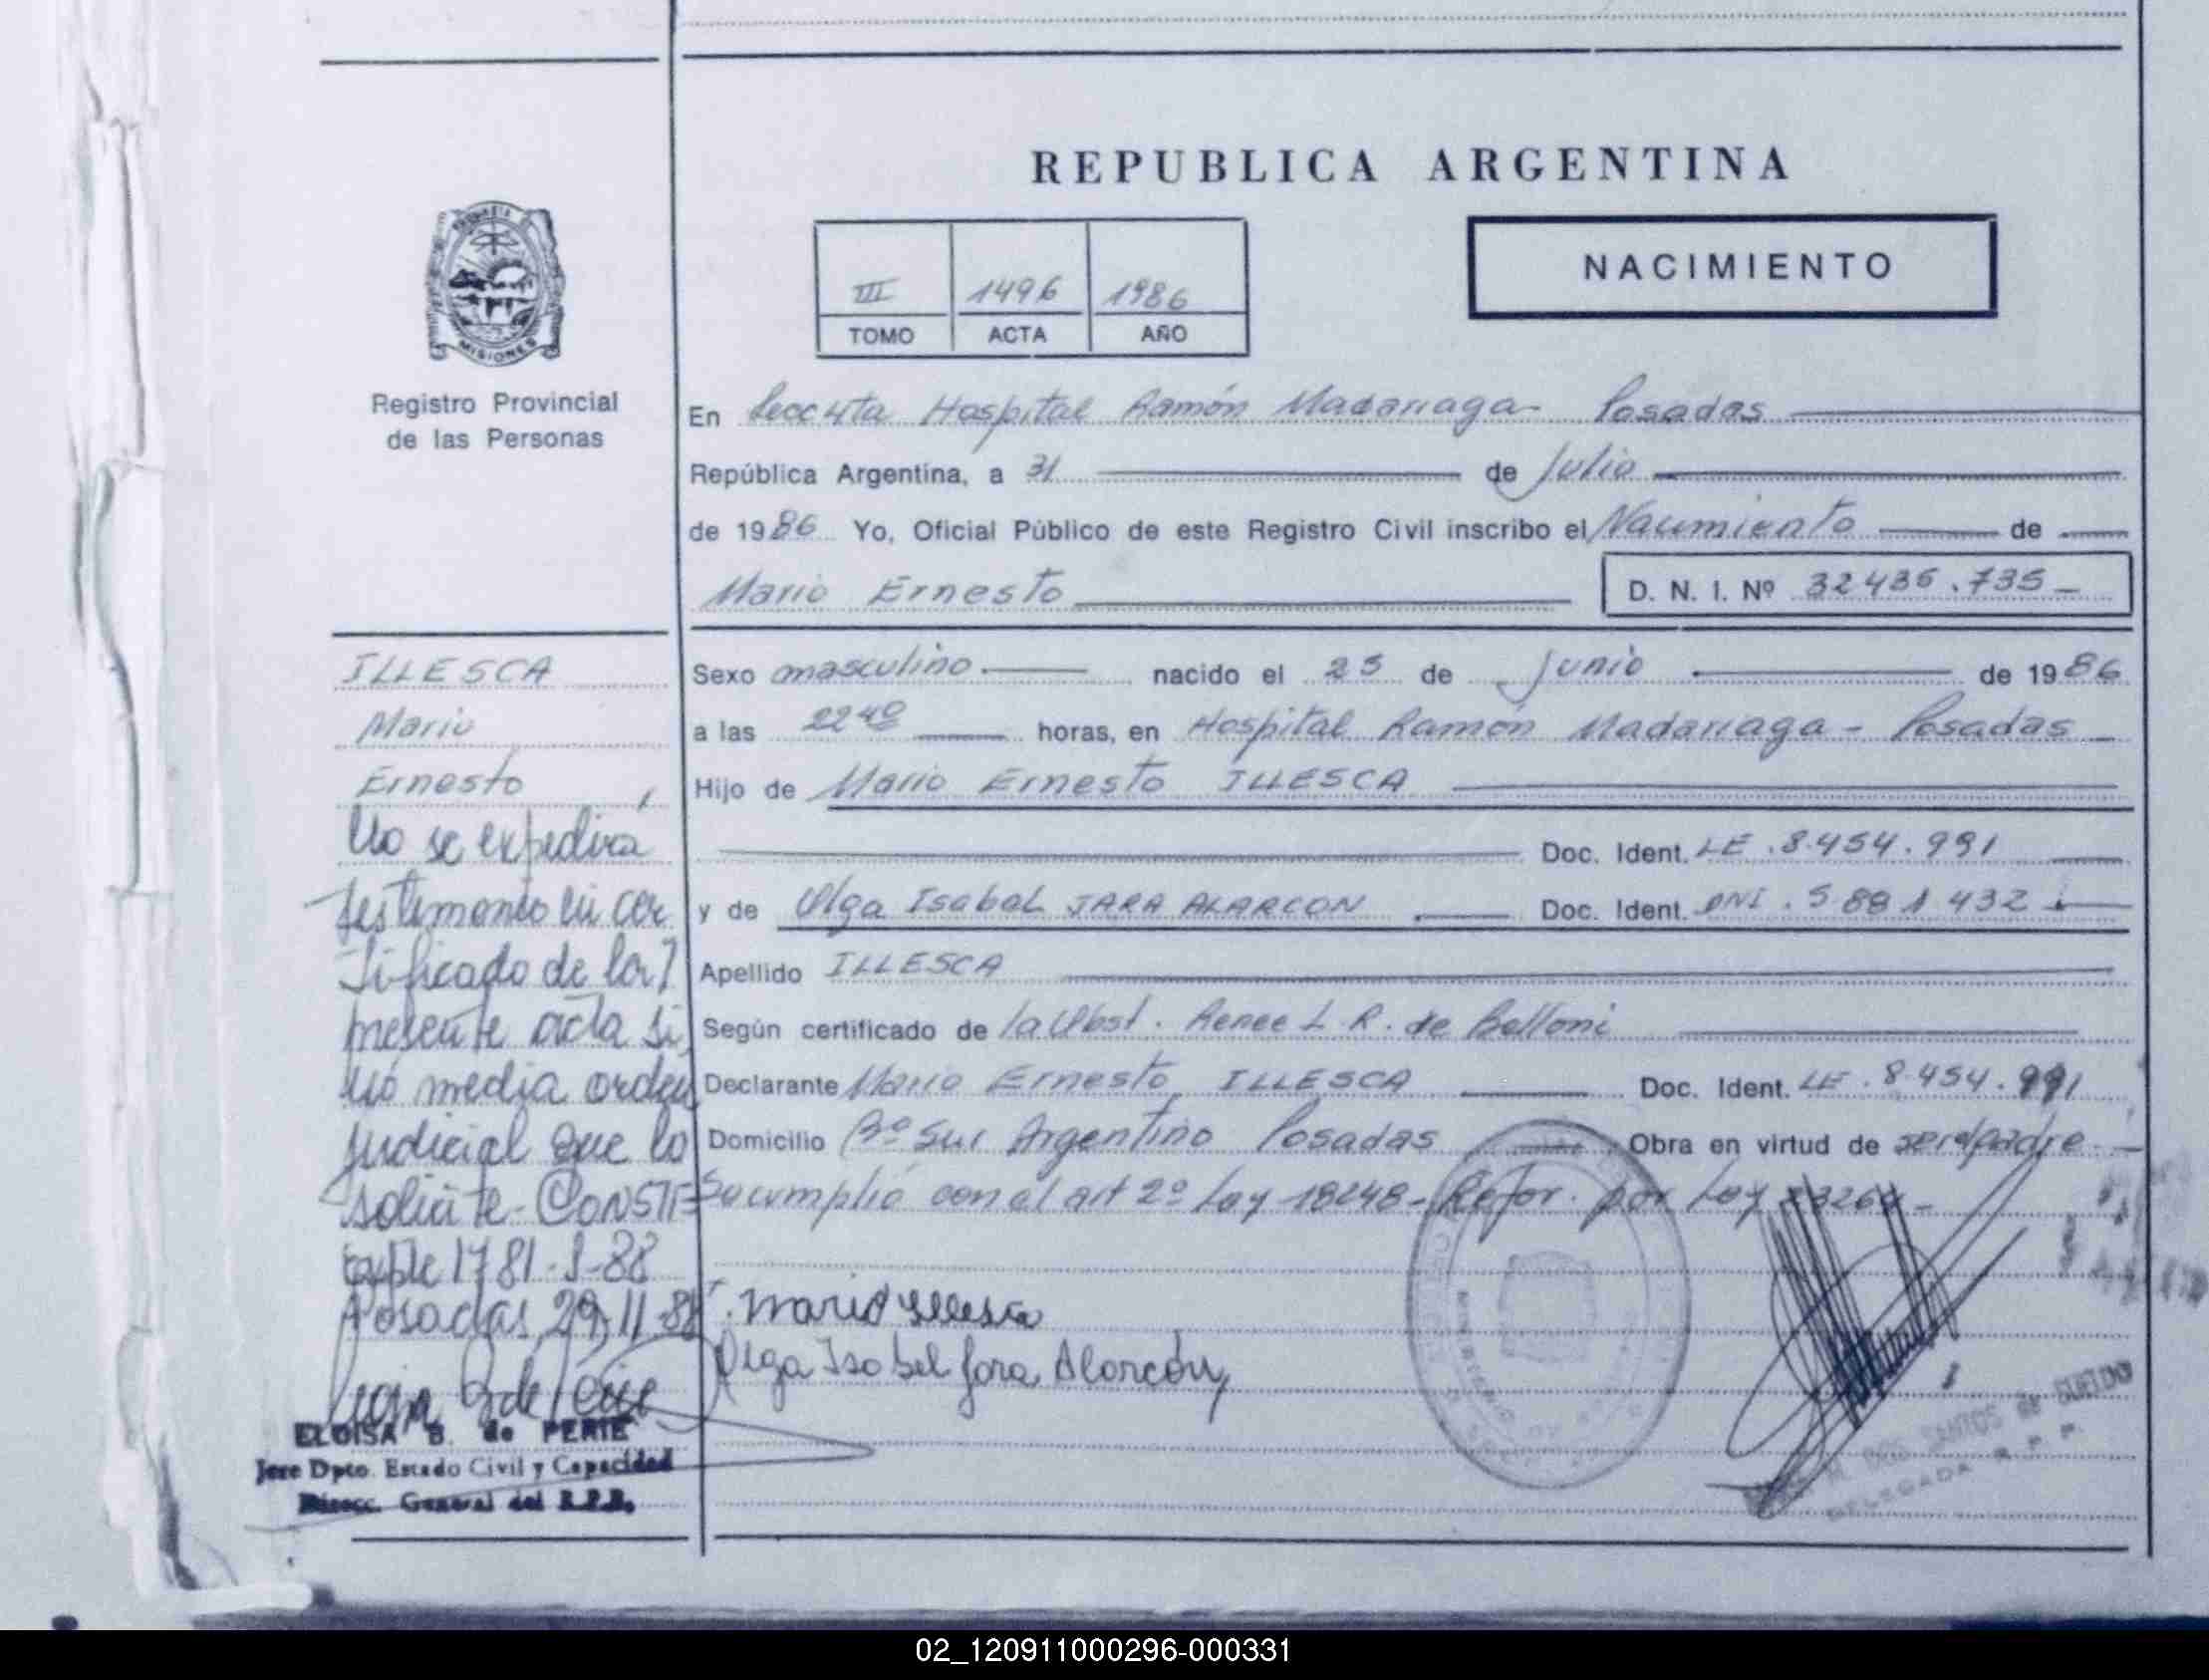 REPUBLICA ARGENTINA
NACIMIENTO
III 1496 1986
TOMO ACTA AÑO
MISIONES
Registro Provincial
de las Personas
En Secc 4ta Hospital Ramón Madariaga - Posadas
República Argentina, a 31 de Julio
de 1986 Yo, Oficial Público de este Registro Civil inscribo el Nacimiento de
Mario Ernesto D. N. I. Nº 32.436.735
ILLESCA
Mario
Ernesto
Sexo masculino nacido el 23 de Junio de 1986
a las 22 40 horas, en Hospital Ramón Madariaga - Posadas
Hijo de Mario Ernesto ILLESCA
Doc. Ident. LE. 8.454.991
y de Olga Isabel JARA ALARCON Doc. Ident. DNI. 5 881 432
Apellido ILLESCA
Según certificado de la Obst. Renee L. R. de Belloni
Declarante Mario Ernesto ILLESCA Doc. Ident. LE. 8.454.991
Domicilio Bº Sur Argentino Posadas Obra en virtud de ser el padre
Se cumplió con el art 2º Ley 18248 - Refor. por Ley 23264 -
No se expedirá
testimonio ni cer
tificado de la
presente acta si
nó media orden
judicial que lo
solicite - CONSTE
Expte 1781-J-88
Posadas 29-11-88
Mario Illesca
Olga Isabel Jara Alarcón
ELOISA B. de PERIE
Jefe Dpto. Estado Civil y Capacidad
Direcc. General del R.P.P.
M. DOS SANTOS de SUELDO
DELEGADA R. P. P.
02_120911000296-000331